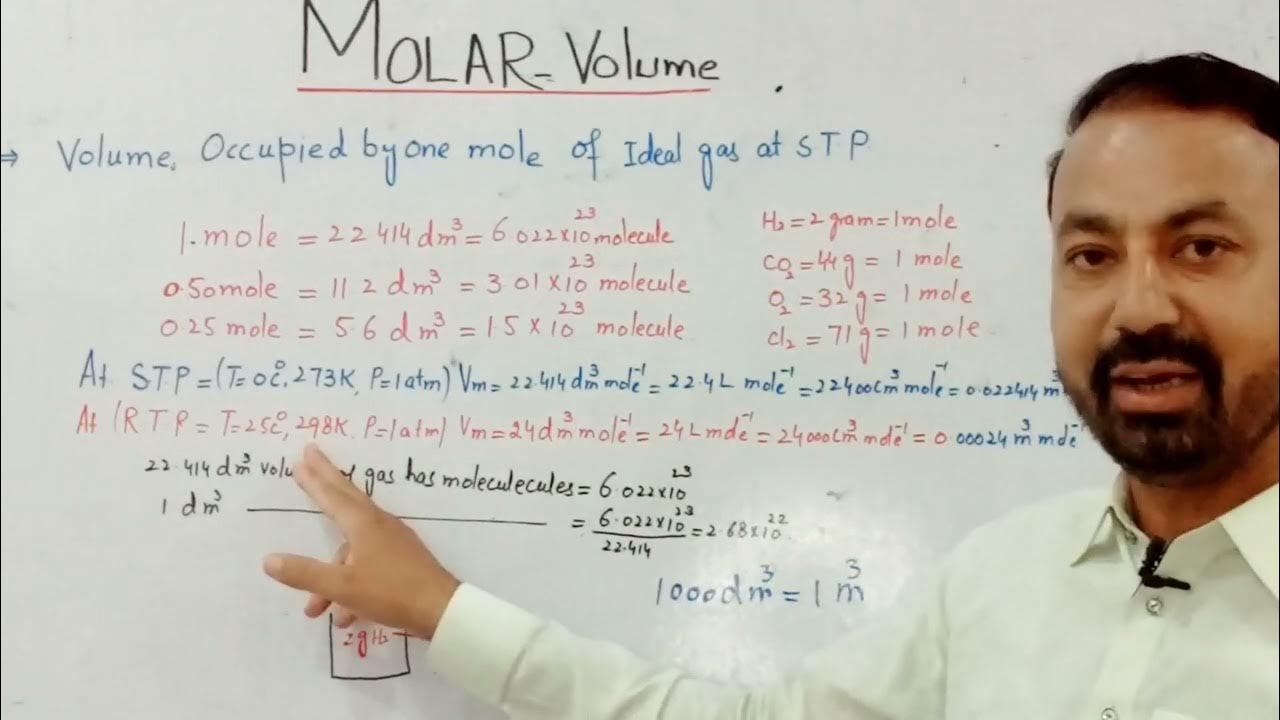 MOLAR-Volume
⇒ Volume, Occupied by one mole of Ideal gas at STP
1.mole = 22 414 dm³ = 6 022×10²³ molecule
0.50mole = 11 2 dm³ = 3.01×10²³ molecule
0.25 mole = 5.6 dm³ = 1.5×10²³ molecule
H₂ = 2 gram = 1mole
CO₂ = 44g = 1 mole
O₂ = 32g = 1 mole
Cl₂ = 71g = 1 mole
At STP = (T=0C°, 273K, P=1atm) Vm = 22.414dm³mole⁻¹ = 22.4L mole⁻¹ = 22400cm³mole⁻¹ = 0.022414m³
At (RTP = T=25C°, 298K, P=1atm) Vm = 24dm³mole⁻¹ = 24Lmole⁻¹ = 24000cm³mole⁻¹ = 0.00024m³mole⁻¹
22.414 dm³ gas has moleculecules = 6.022×10²³
1 dm³ = 6.022×10²³/22.414 = 2.68×10²²
1000dm³ = 1m³
2gH₂